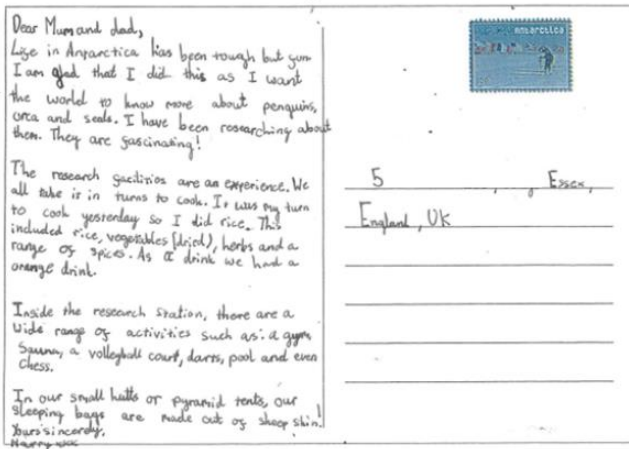 Dear Mum and dad,
Life in Antarctica has been tough but fun
I am glad that I did this as I want
the world to know more about penguins,
orca and seals. I have been researching about
them. They are fascinating!
The research facilities are an experience. We
all take it in turns to cook. It was my turn
to cook yesterday so I did rice. This
included rice, vegetables (dried), herbs and a
range of spices. As a drink we had a
orange drink.
Inside the research station, there are a
wide range of activities such as: a gym,
sauna, a volleyball court, darts, pool and even
chess.
In our small hutts or pyramid tents, our
sleeping bags are made out of sheep skin!
Yours sincerely,
Harry xxx
antarctica
5 , , Essex,
England, UK